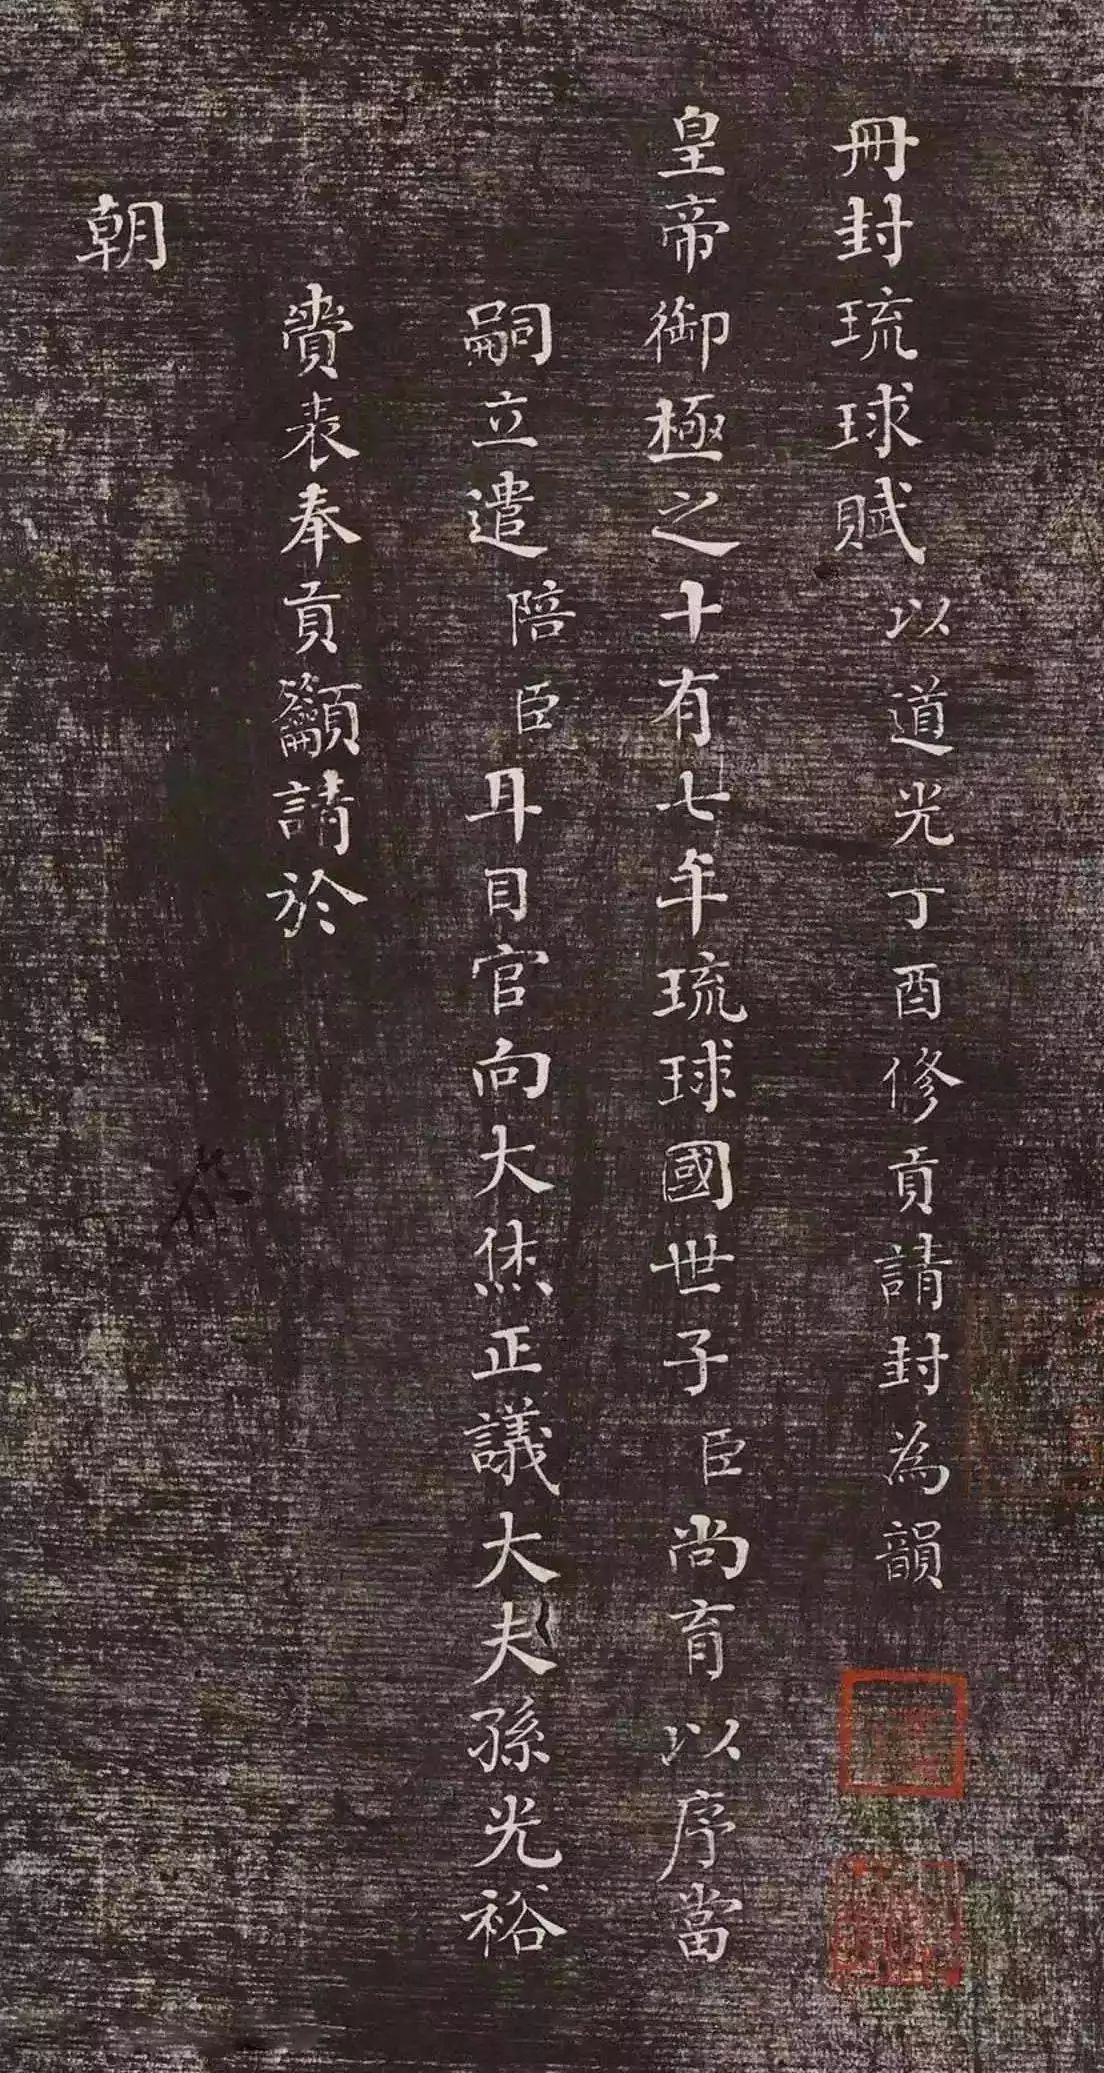 冊封琉球賦以道光丁酉修貢請封為韻
皇帝御極之十有七年琉球國世子臣尚育以序當
嗣立遣陪臣耳目官向大烋正議大夫孫光裕
賫表奉貢籲請於
朝